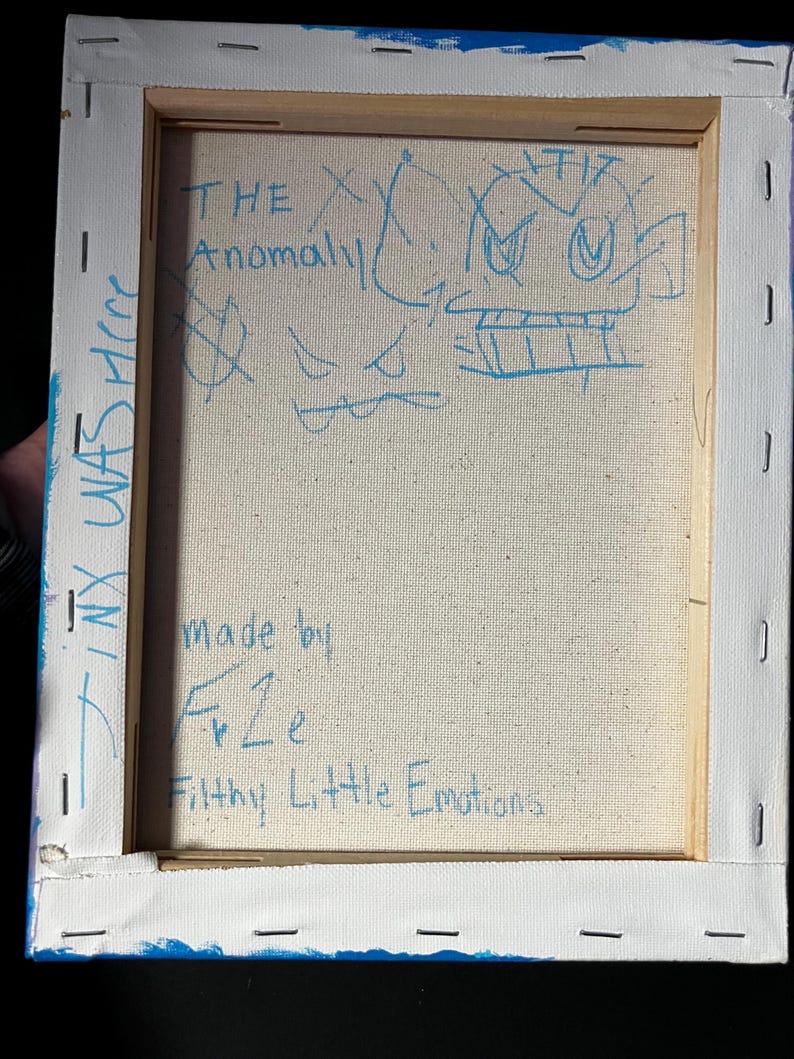 THE
Anomaly
JiNX WAS Here
made by
FrZe
Filthy Little Emotions